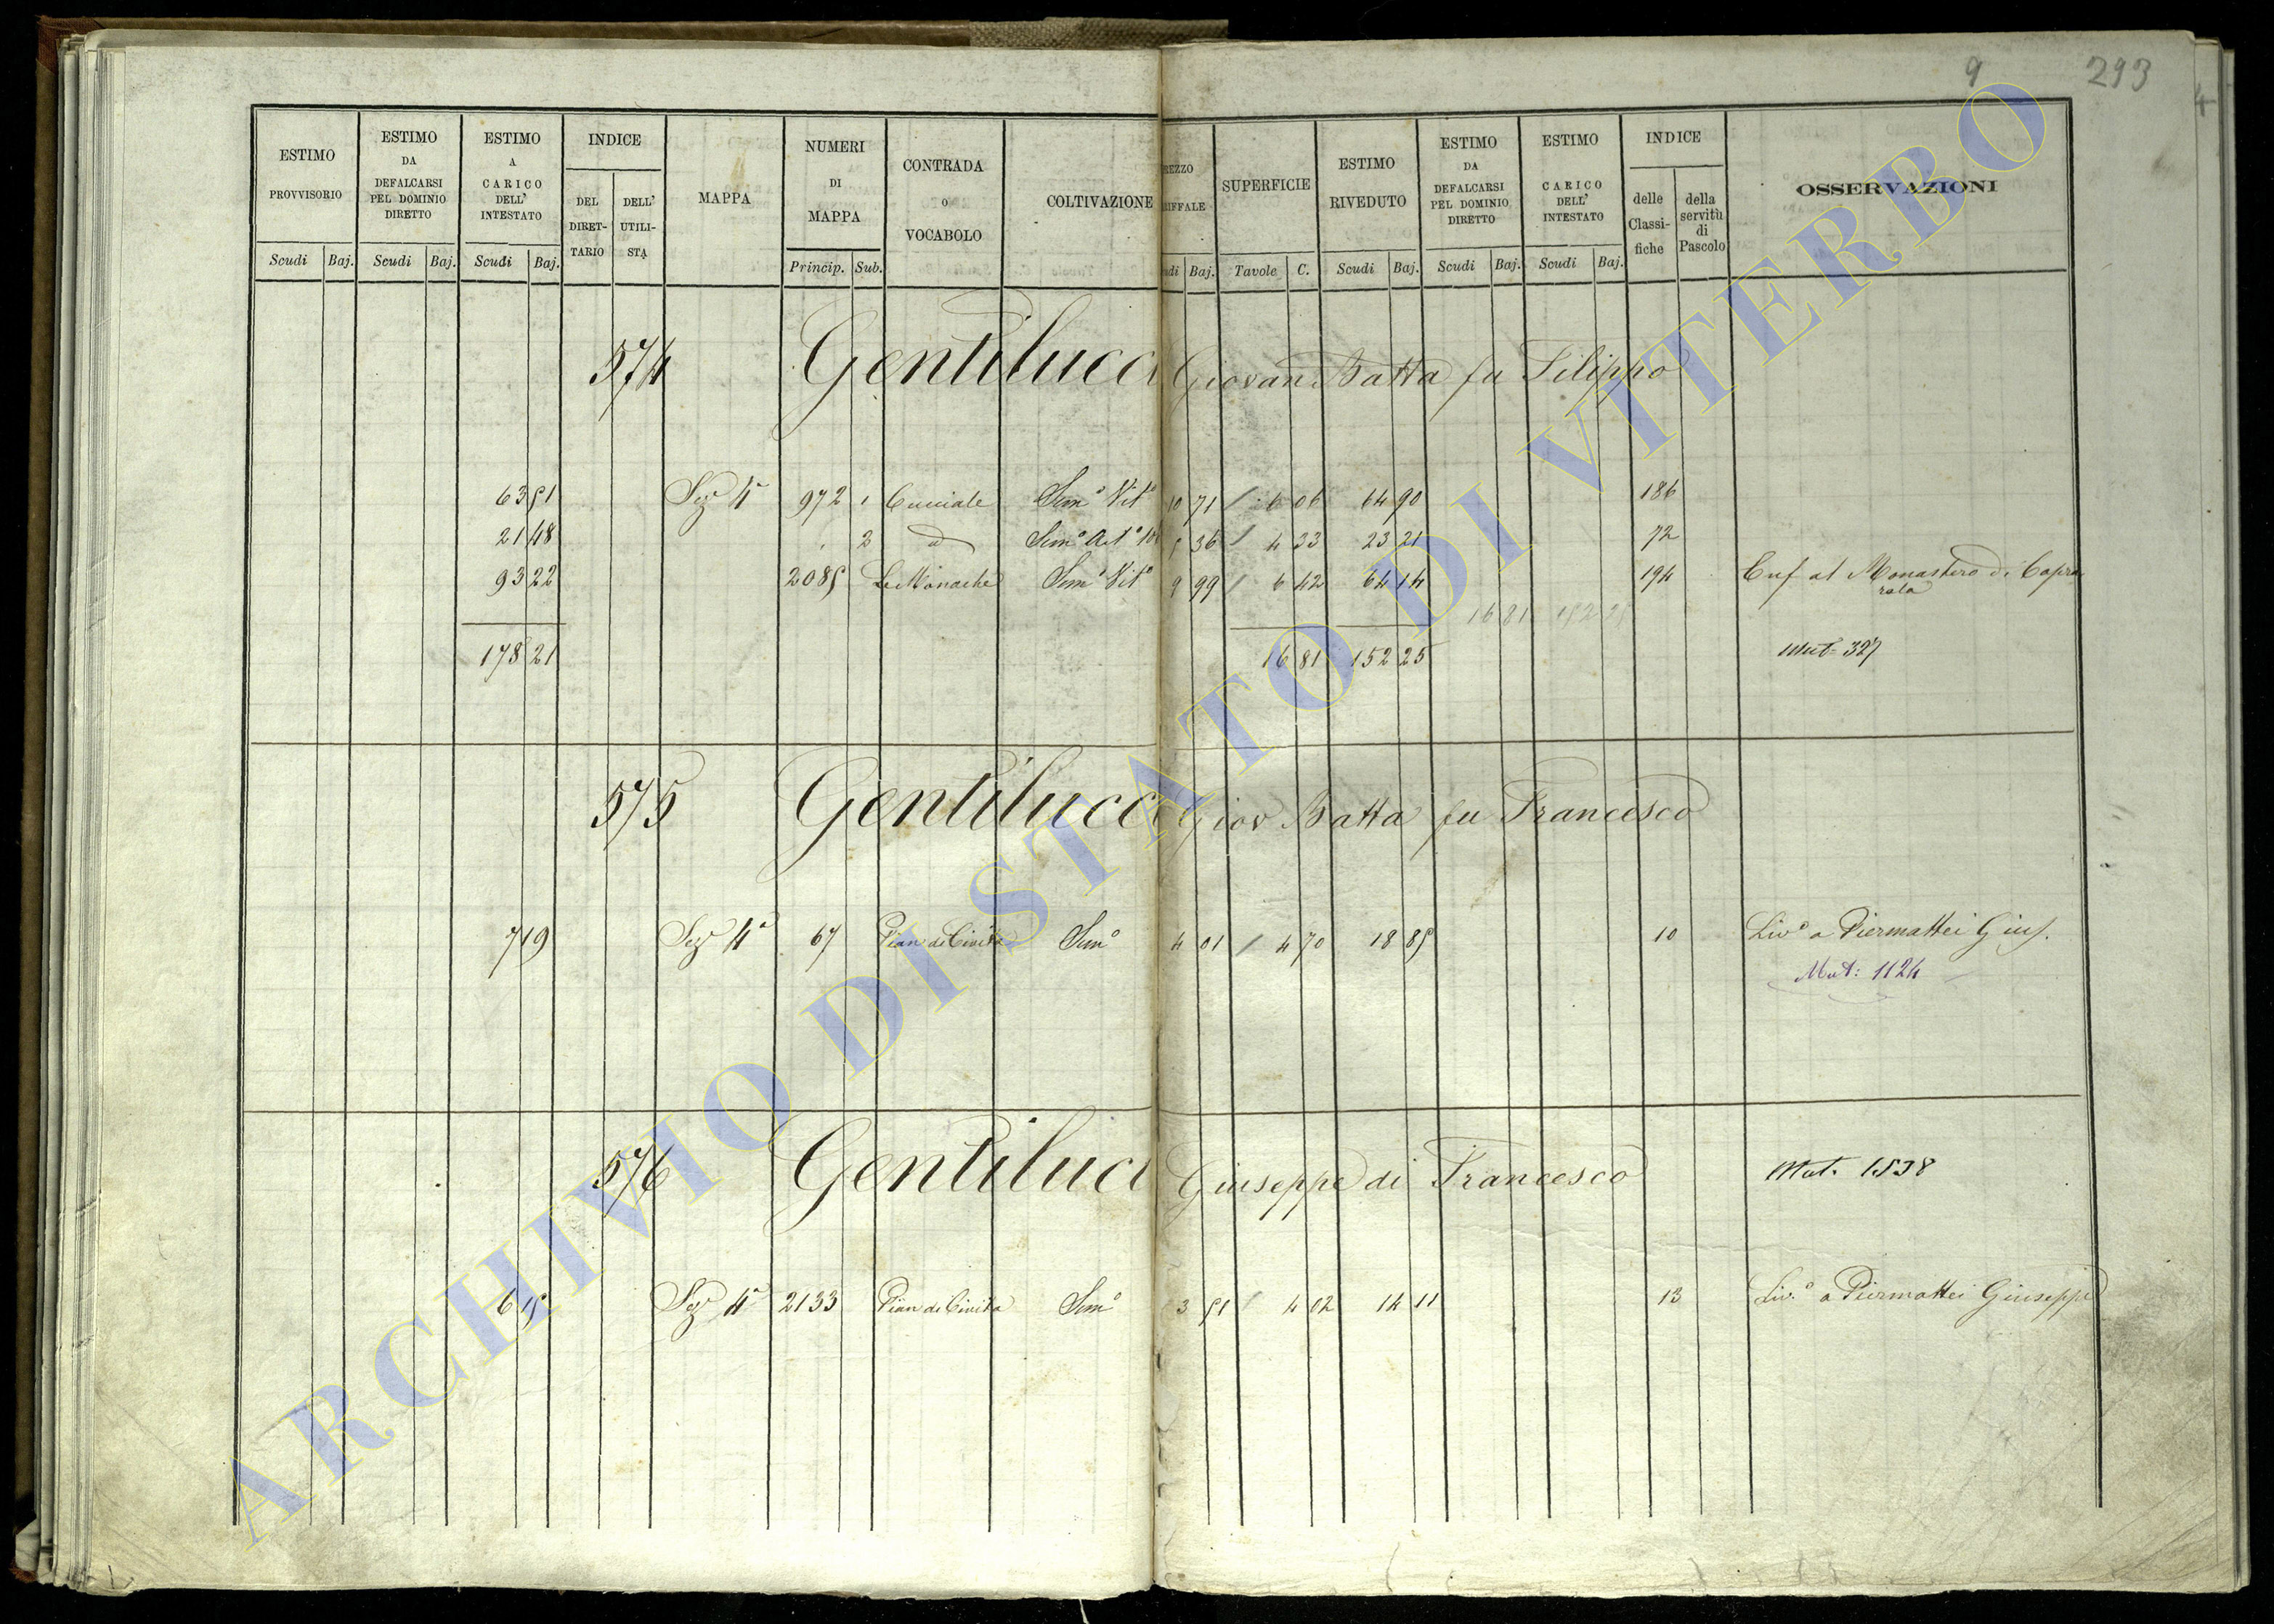 9 293
4
ESTIMO PROVVISORIO
ESTIMO DA DEFALCARSI PEL DOMINIO DIRETTO
ESTIMO A CARICO DELL' INTESTATO
INDICE
DEL DIRET-TARIO
DELL' UTILI-STA
MAPPA
NUMERI DI MAPPA
CONTRADA O VOCABOLO
COLTIVAZIONE
REZZO RIFFALE
SUPERFICIE
ESTIMO RIVEDUTO
ESTIMO DA DEFALCARSI PEL DOMINIO DIRETTO
ESTIMO CARICO DELL' INTESTATO
INDICE
delle Classi-fiche
della servitù di Pascolo
OSSERVAZIONI
Scudi Baj. Scudi Baj. Scudi Baj. Princip. Sub. udi Baj. Tavole C. Scudi Baj. Scudi Baj. Scudi Baj.
574 Gentilucci Giovan Batta fu Filippo
63 51 Sez 4ª 972 1 Cucciale Semº Vitº 10 71 6 06 64 90 186
21 48 2 d Semº 5 36 4 33 23 21 72
93 22 2085 Le Monache Semº Vitº 9 99 6 42 64 14 194 Enf al Monastero di Capra
rola
16 81 152 25
178 21 16 81 152 25 Mut= 327
575 Gentilucci Giov Batta fu Francesco
7 19 Sez 4ª 67 Pian di Civita Semº 4 01 4 70 18 85 10 Livº a Piermattei Gius.
Mut: 1124
576 Gentiluci Giuseppe di Francesco Mut. 1538
6 15 Sez 4ª 2133 Pian di Civita Semº 3 51 4 02 14 11 13 Livº a Piermattei Giuseppe
ARCHIVIO DI STATO DI VITERBO